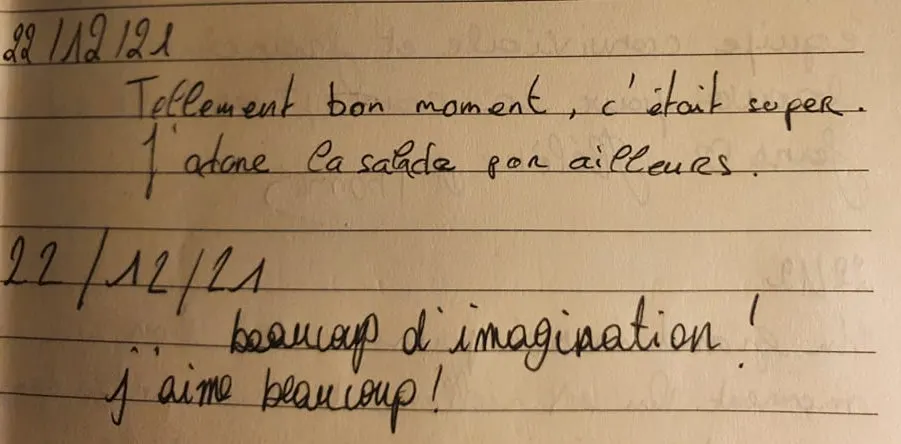 22/12/21
Tellement bon moment, c'était super.
J'adore la salade par ailleurs.
22/12/21
beaucoup d'imagination !
j'aime beaucoup !